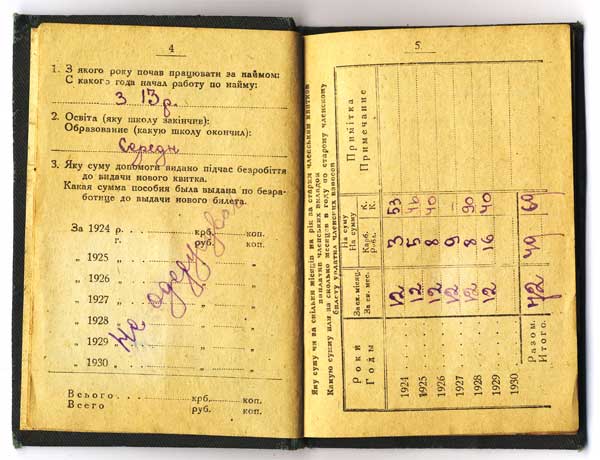 4
1. З якого року почав працювати за наймом:
С какого года начал работу по найму:
з 13 р.
2. Освіта (яку школу закінчив):
Образование (какую школу окончил):
Середн
3. Яку суму допомоги видано підчас безробіття
до видачи нового квитка.
Какая сумма пособия была выдана по безра-
ботице до выдачи нового билета.
За 1924 р. крб. коп.
г. руб. коп.
„ 1925 „ „ „
„ 1926 „ „ „
„ 1927 „ „ „
„ 1928 „ „ „
„ 1929 „ „ „
„ 1930 „ „ „
Не одержував
Всього крб. коп.
Всего руб. коп.
5.
Яку суму чи за скільки місяців на рік за старим членським квитком
поплатив членських вкладок
Какую сумму или за сколько месяцев в году по старому членскому
билету уплатил членских взносов
Роки За ск. місяц. На суму Примітка
Годы За ск. мес. На сумму Примечание
Карб. К.
Рубл. К.
1924 12 3 53
1925 12 5 46
1926 12 8 40
1927 12 9
1928 12 8 90
1929 12 16 40
1930
Разом. 72 49 69
Итого.